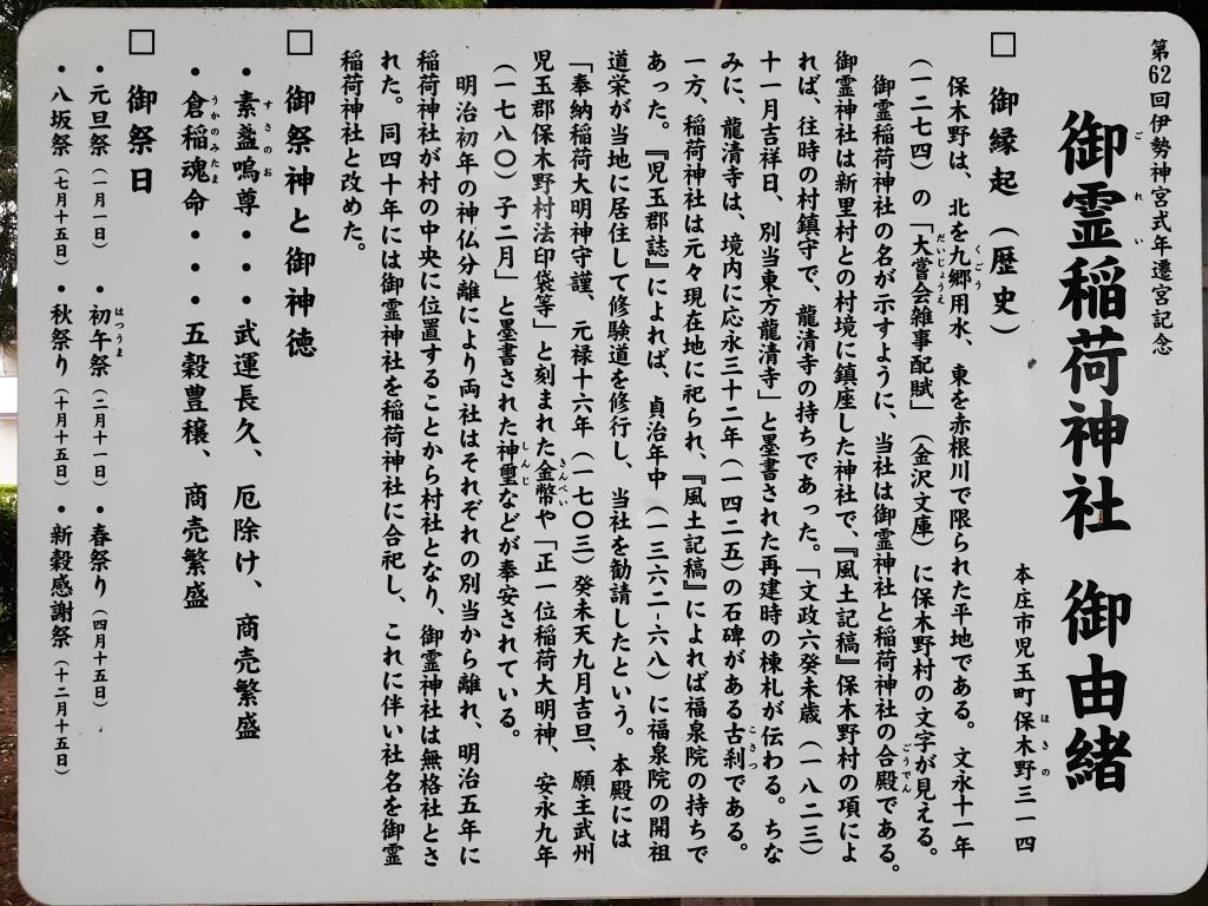 第62回伊勢神宮式年遷宮記念
御霊稲荷神社 御由緒
ごれい
本庄市児玉町保木野三一四
ほきの
□ 御縁起（歴史）
保木野は、北を九郷用水、東を赤根川で限られた平地である。文永十一年
くごう
（一二七四）の「大嘗会雑事配賦」（金沢文庫）に保木野村の文字が見える。
だいじょうえ
御霊稲荷神社の名が示すように、当社は御霊神社と稲荷神社の合殿である。
ごうでん
御霊神社は新里村との村境に鎮座した神社で、『風土記稿』保木野村の項によ
れば、往時の村鎮守で、龍清寺の持ちであった。「文政六癸未歳（一八二三）
十一月吉祥日、別当東方龍清寺」と墨書された再建時の棟札が伝わる。ちな
みに、龍清寺は、境内に応永三十二年（一四二五）の石碑がある古刹である。
こさつ
一方、稲荷神社は元々現在地に祀られ、『風土記稿』によれば福泉院の持ちで
あった。『児玉郡誌』によれば、貞治年中（一三六二-六八）に福泉院の開祖
道栄が当地に居住して修験道を修行し、当社を勧請したという。本殿には
「奉納稲荷大明神守謹、元禄十六年（一七〇三）癸未天九月吉旦、願主武州
児玉郡保木野村法印袋等」と刻まれた金幣や「正一位稲荷大明神、安永九年
きんぺい
（一七八〇）子二月」と墨書された神璽などが奉安されている。
しんじ
明治初年の神仏分離により両社はそれぞれの別当から離れ、明治五年に
稲荷神社が村の中央に位置することから村社となり、御霊神社は無格社とさ
れた。同四十年には御霊神社を稲荷神社に合祀し、これに伴い社名を御霊
稲荷神社と改めた。
□ 御祭神と御神徳
・素盞嗚尊・・・武運長久、厄除け、商売繁盛
すさのお
・倉稲魂命・・・五穀豊穣、商売繁盛
うかのみたま
□ 御祭日
・元旦祭（一月一日）・初午祭（二月十一日）・春祭り（四月十五日）
はつうま
・八坂祭（七月十五日）・秋祭り（十月十五日）・新穀感謝祭（十二月十五日）